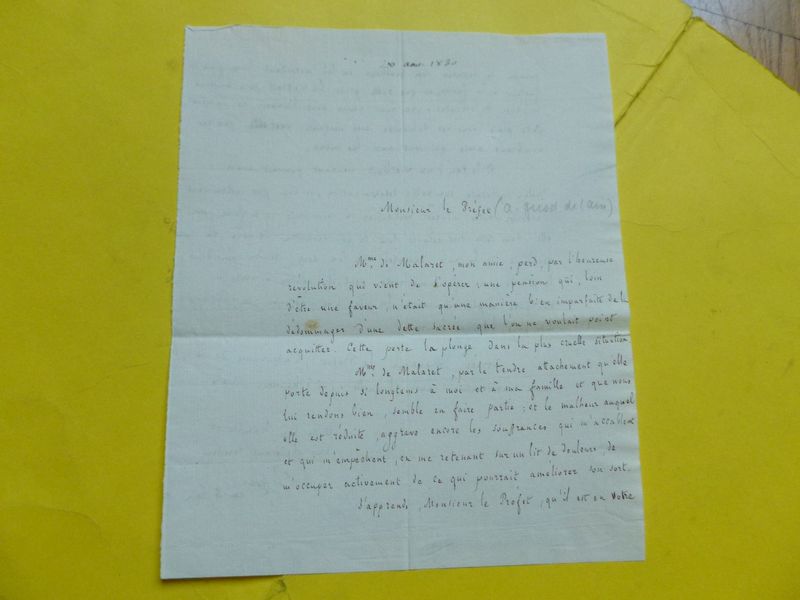 1830
Monsieur le Préfet (A. de l'ain)
Mme de Malaret, mon amie, perd, par l'heureuse
révolution qui vient de s'opérer, une pension qui, loin
d'être une faveur, n'était qu'une manière bien imparfaite de la
dédommager d'une dette sacrée que l'on ne voulait point
acquitter. Cette perte la plonge dans la plus cruelle situation
Mme de Malaret, par le tendre attachement qu'elle
porte depuis si longtems à moi et à ma famille et que nous
lui rendons bien, semble en faire partie; et le malheur auquel
elle est réduite, aggrave encore les soufrances qui m'accablent
et qui m'empêchent, en me retenant sur un lit de douleurs, de
m'occuper activement de ce qui pourrait améliorer son sort.
J'apprends, Monsieur le Préfet, qu'il est en votre